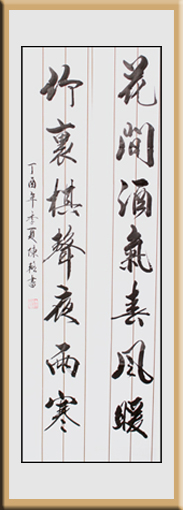 花間酒氣春風暖
竹裏棋聲夜雨寒
丁酉年季夏陳乾書